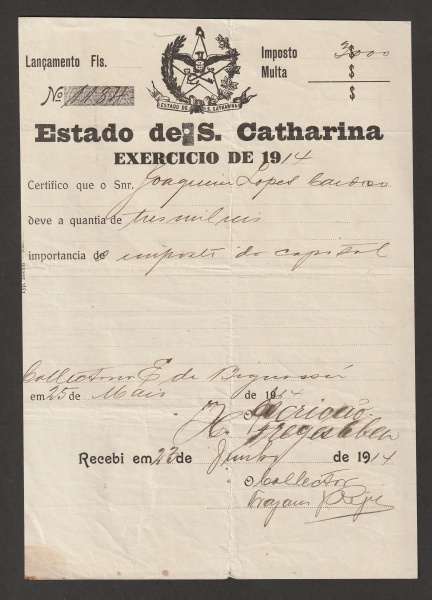 Lançamento Fls.
Imposto 3$000
Multa $
$
Nº 1134
ESTADO DE S. CATHARINA
Estado de S. Catharina
EXERCICIO DE 1914
Certifico que o Snr. Joaquim Lopes Cardoso
deve a quantia de tres mil reis
importancia do imposto do capital
Collectoria E. de Biguassú
em 25 de Maio de 1914
O Escrivão
Recebi em 23 de Junho de 1914
O Collector